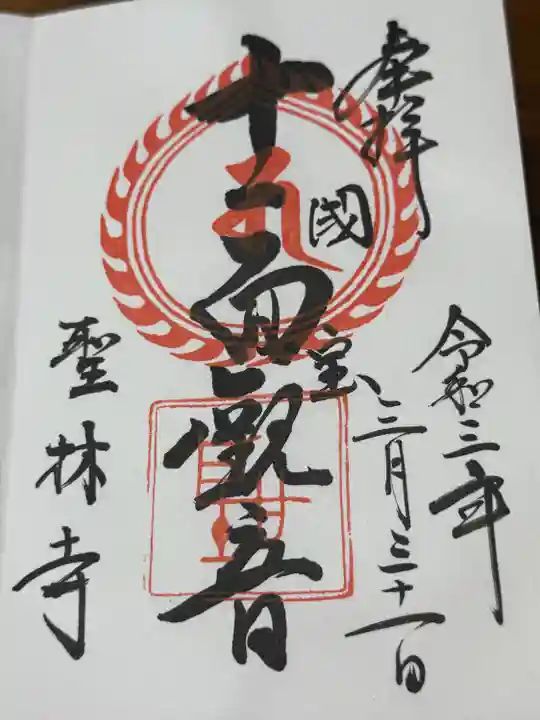 奉拝
令和三年
三月三十一日
國宝
十一面觀音
聖林寺